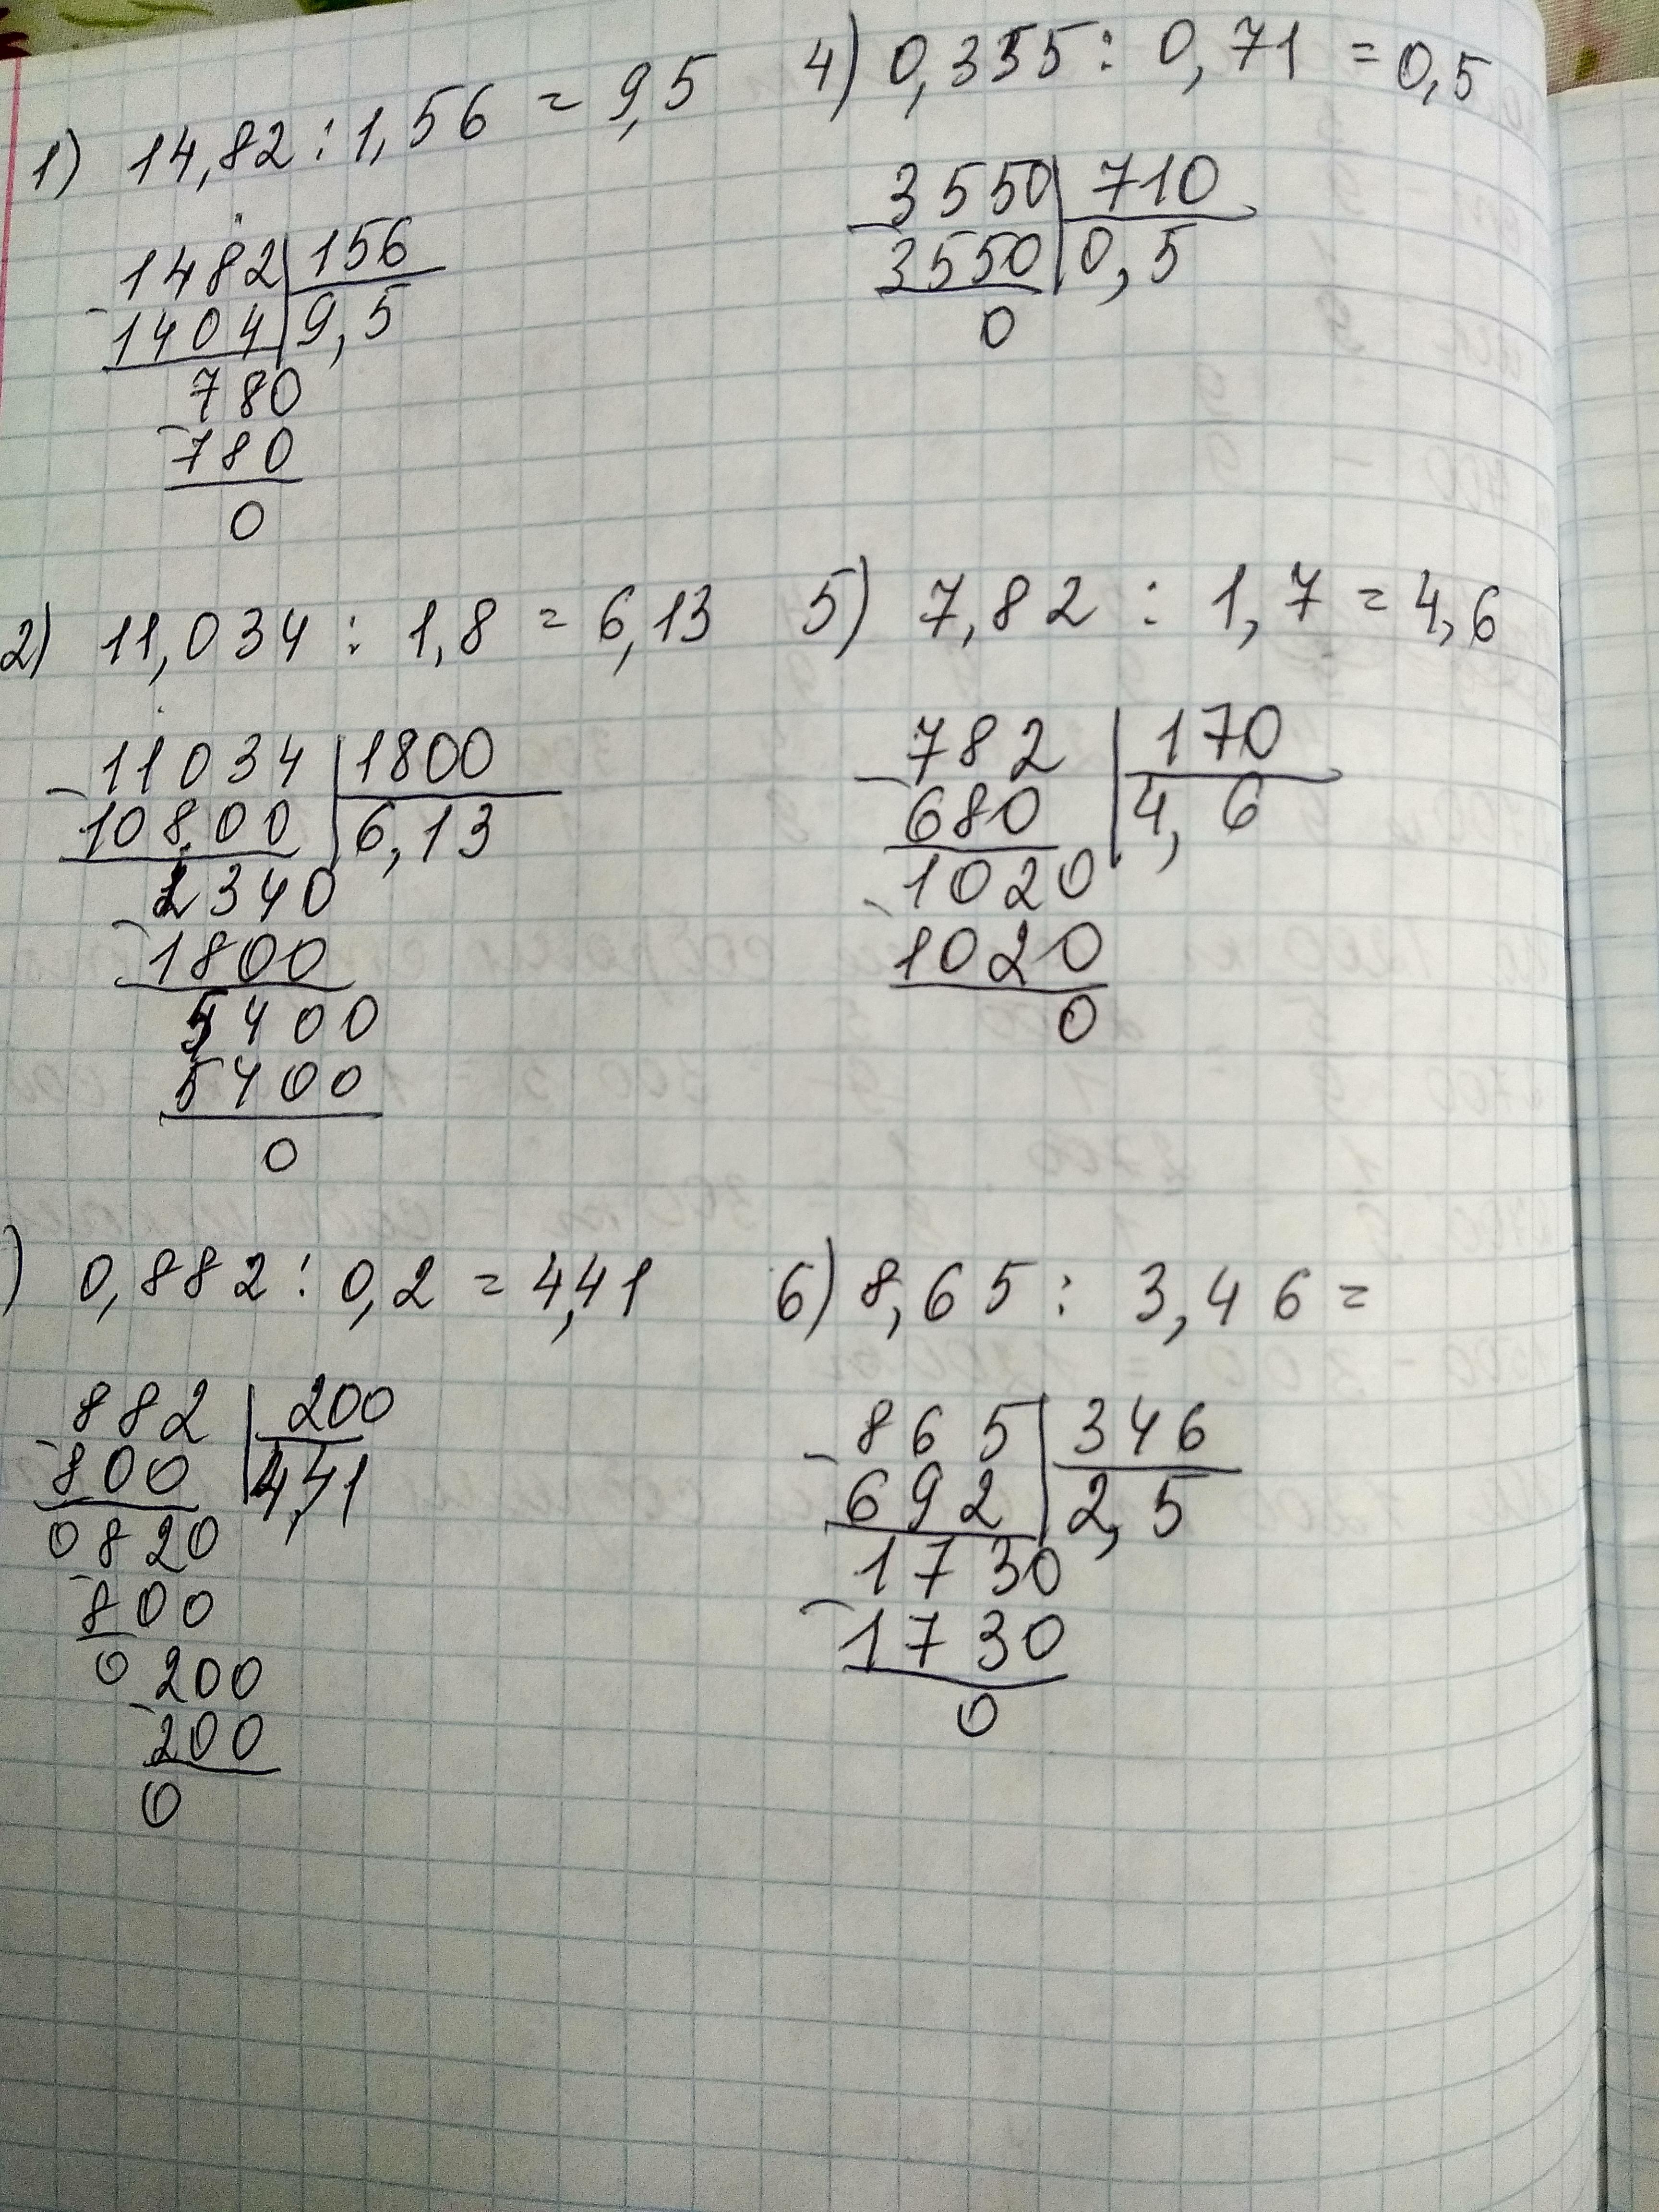 1) 14,82 : 1,56 = 9,5
1482 156
- 1404 9,5
780
- 780
0
2) 11,034 : 1,8 = 6,13
- 11034 1800
10800 6,13
2340
- 1800
5400
5400
0
) 0,882 : 0,2 = 4,41
- 882 200
800 4,41
0820
- 800
0 200
- 200
0
4) 0,355 : 0,71 = 0,5
- 3550 710
3550 0,5
0
5) 7,82 : 1,7 = 4,6
- 782 170
680 4,6
- 1020
1020
0
6) 8,65 : 3,46 =
- 865 346
692 2,5
- 1730
1730
0